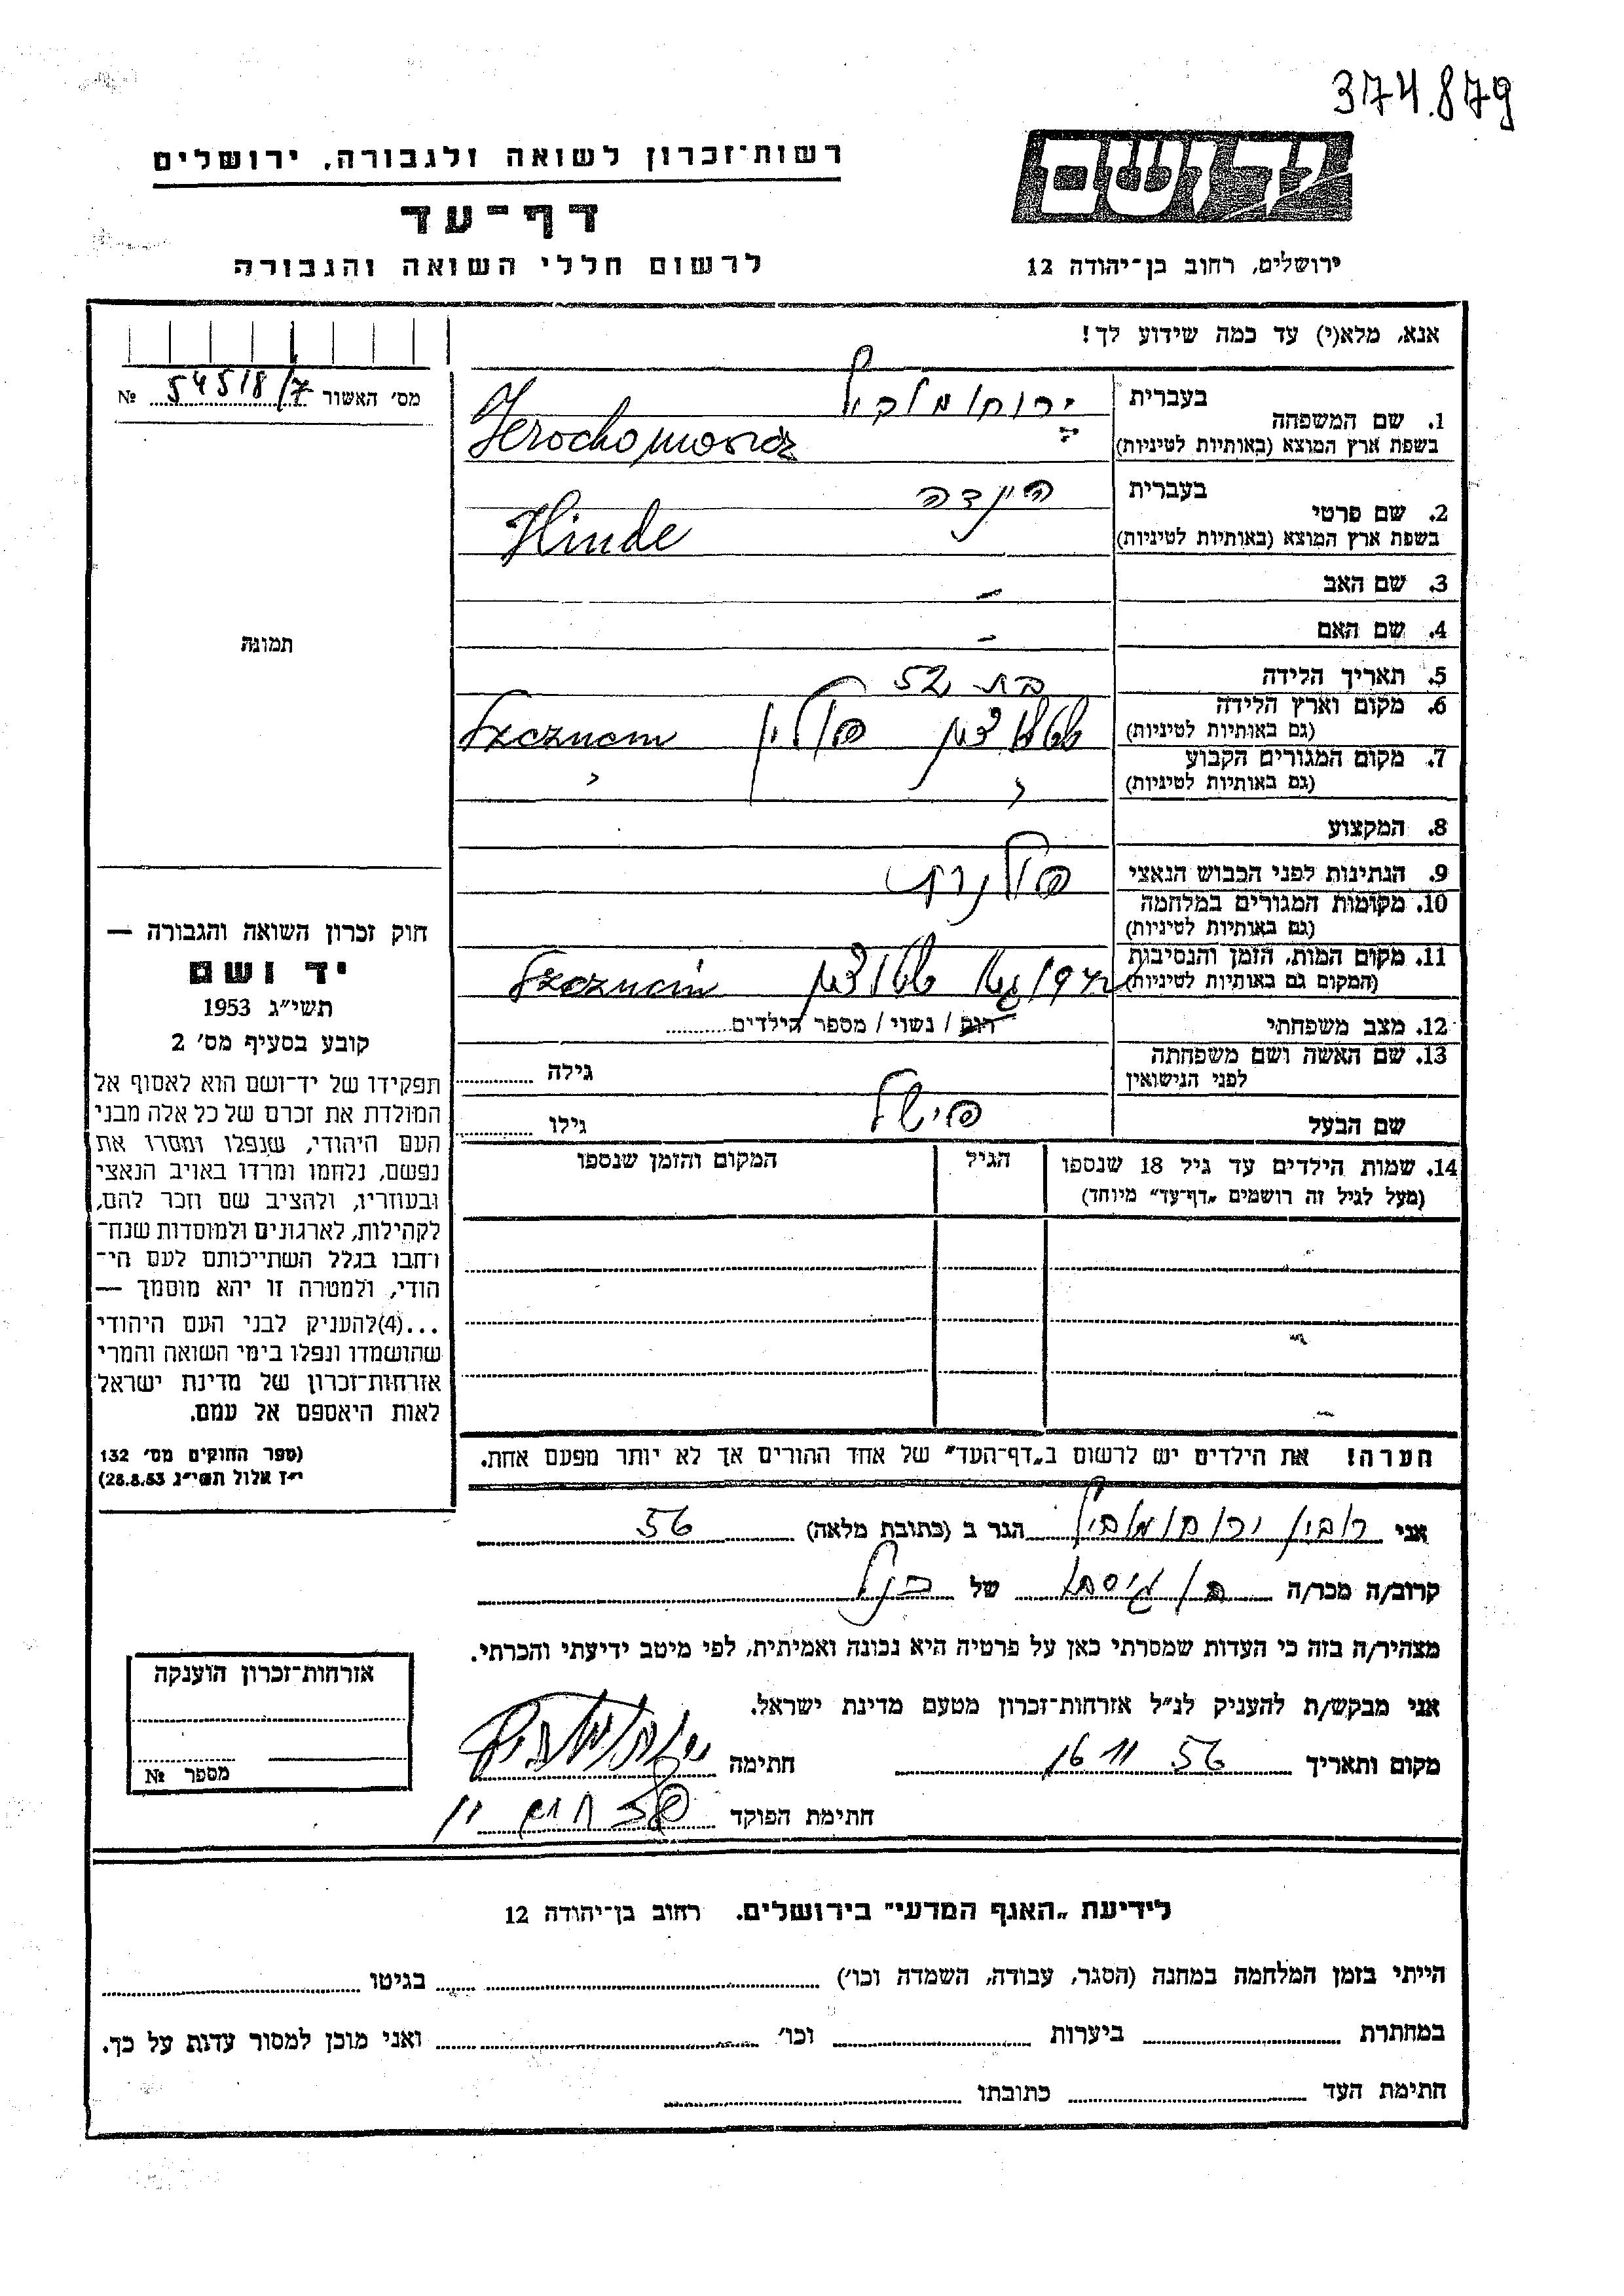 374.879
רשות־זכרון לשואה ולגבורה, ירושלים
יד ושם
דף־עד
לרשום חללי השואה והגבורה
ירושלים, רחוב בן־יהודה 12
אנא, מלא(י) עד כמה שידוע לך!
מס׳ האשור 54518/7 №
בעברית
1. שם המשפחה
בשפת ארץ המוצא (באותיות לטיניות)
בעברית הינדה
2. שם פרטי
בשפת ארץ המוצא (באותיות לטיניות) Hinde
3. שם האב –
4. שם האם –
תמונה
5. תאריך הלידה בת 52
6. מקום וארץ הלידה פולין
(גם באותיות לטיניות)
7. מקום המגורים הקבוע
(גם באותיות לטיניות)
8. המקצוע
9. הנתינות לפני הכבוש הנאצי פולנית
10. מקומות המגורים במלחמה
(גם באותיות לטיניות)
11. מקום המות, הזמן והנסיבות
(המקום גם באותיות לטיניות)
12. מצב משפחתי רוק / נשוי / מספר הילדים
13. שם האשה ושם משפחתה
לפני הנישואין גילה
שם הבעל פישל גילו
14. שמות הילדים עד גיל 18 שנספו הגיל המקום והזמן שנספו
(מעל לגיל זה רושמים „דף־עד״ מיוחד)
הערה! את הילדים יש לרשום ב„דף־העד״ של אחד ההורים אך לא יותר מפעם אחת.
חוק זכרון השואה והגבורה —
יד ושם
תשי״ג 1953
קובע בסעיף מס׳ 2
תפקידו של יד־ושם הוא לאסוף אל
המולדת את זכרם של כל אלה מבני
העם היהודי, שנפלו ומסרו את
נפשם, נלחמו ומרדו באויב הנאצי
ובעוזריו, ולהציב שם וזכר להם,
לקהילות, לארגונים ולמוסדות שנח־
רבו בגלל השתייכותם לעם הי־
הודי, ולמטרה זו יהא מוסמך —
...(4)להעניק לבני העם היהודי
שהושמדו ונפלו בימי השואה והמרי
אזרחות־זכרון של מדינת ישראל
לאות היאספם אל עמם.
(ספר החוקים מס׳ 132
י״ז אלול תשי״ג 28.8.53)
אני רובין הגר ב (כתובת מלאה) 56
קרוב/ה מכר/ה בן גיסה של הנ״ל
מצהיר/ה בזה כי העדות שמסרתי כאן על פרטיה היא נכונה ואמיתית, לפי מיטב ידיעתי והכרתי.
אני מבקש/ת להעניק לנ״ל אזרחות־זכרון מטעם מדינת ישראל.
מקום ותאריך 16 11 56 חתימה
חתימת הפוקד
אזרחות־זכרון הוענקה
מספר №
לידיעת „האגף המדעי״ בירושלים. רחוב בן־יהודה 12
הייתי בזמן המלחמה במחנה (הסגר, עבודה, השמדה וכו׳) בגיטו
במחתרת ביערות וכו׳ ואני מוכן למסור עדות על כך.
חתימת העד כתובתו